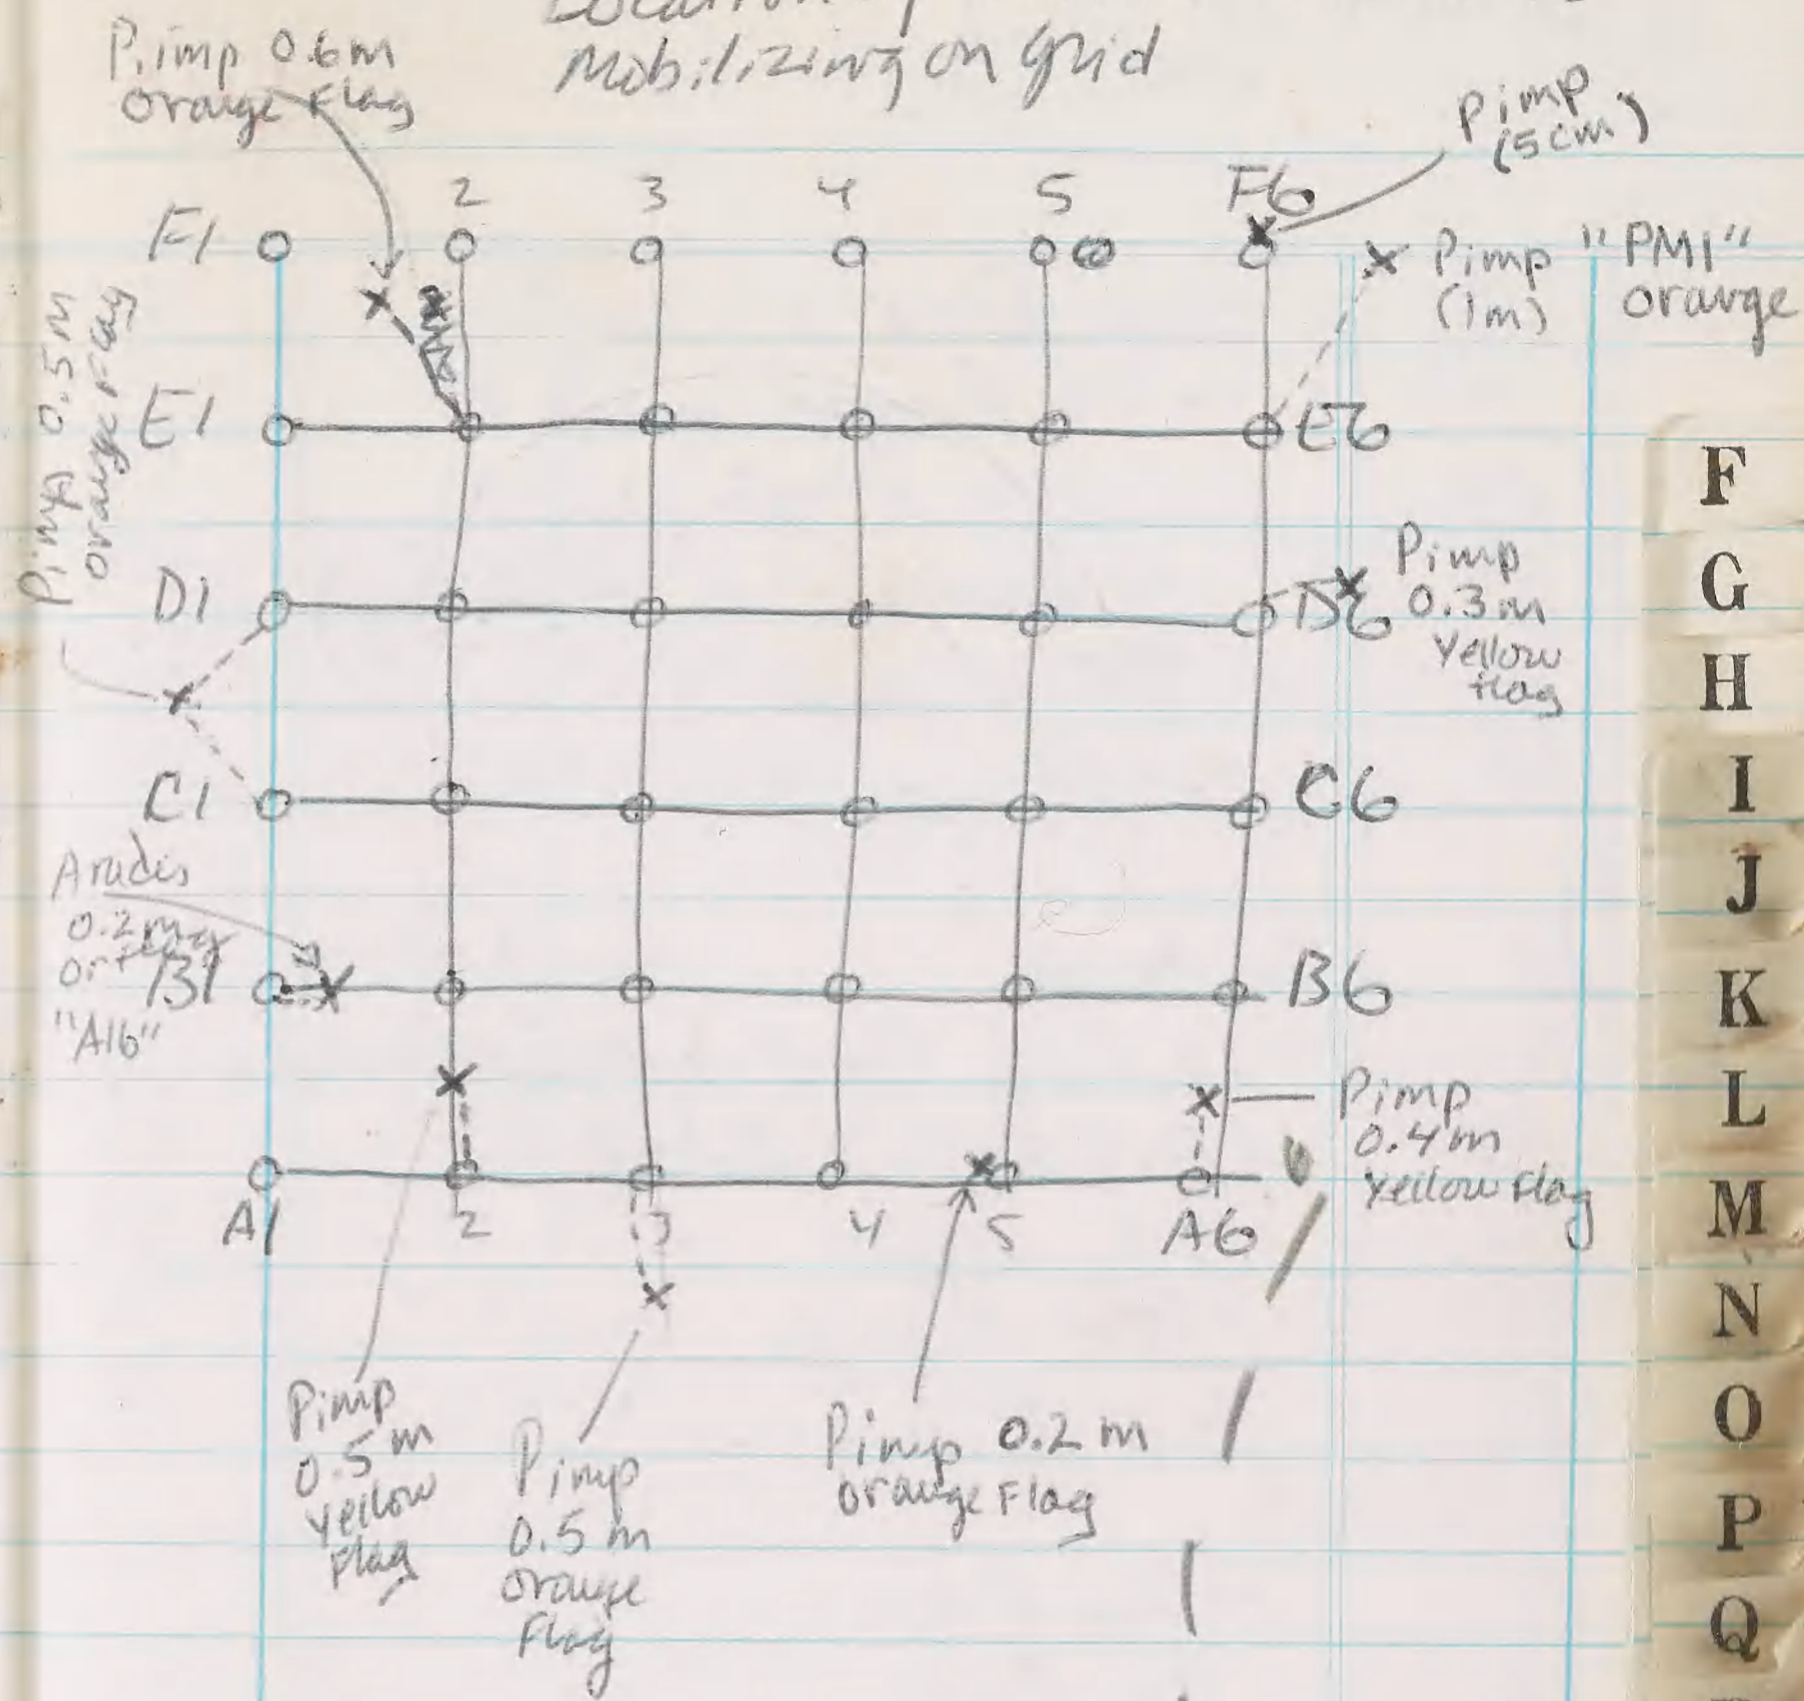 Mobilizing on grid
P.imp 0.6m
orange Flag
Pimp
(5cm)
2 3 4 5 F6
F1
Pimp "PM1"
(1m) orange
Pimp 0.5m
orange Flag
E1 E6
D1 D6
Pimp
0.3m
Yellow
flag
C1 C6
0.2m
B1 B6
"A16"
Pimp
0.4m
Yellow Flag
A1 2 3 4 5 A6
Pimp
0.5m
Yellow
Flag
Pimp
0.5m
orange
Flag
Pimp 0.2m
orange Flag
F
G
H
I
J
K
L
M
N
O
P
Q